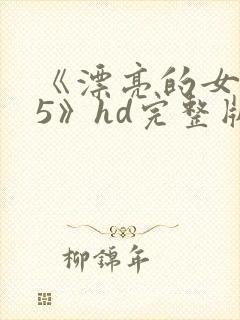 《漂亮的女
5》hd完整版
柳锦年